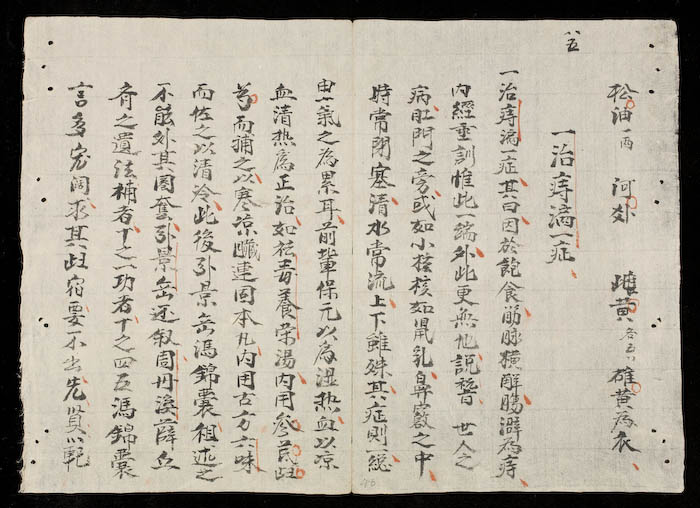 松油一両 雌黄各五 雄黄為衣
一治痔漏一症
一治痔漏一症其曰因於飽食筋脉横解腸澼為痔
内經垂訓惟此一端外此更無他說 世人之
病肛門之旁或如小核核如鼠乳鼻竅之中
時常閉塞清水常流上下雖殊其症則総
由氣之為累耳前輩保元以為湿热血以凉
血清热為正治如祛毒養栄湯内用参芪歸
芎而捕之以寒凉臓連固本丸内用古方六味
而佐之以清冷此後引景岳馮錦囊祖述之
不能外其囿引景岳还叙周丹溪薛立
斉之遺法補者十之一功者十之四五馮錦囊
言多宏闊求其歸宿要不出先賢範
八五